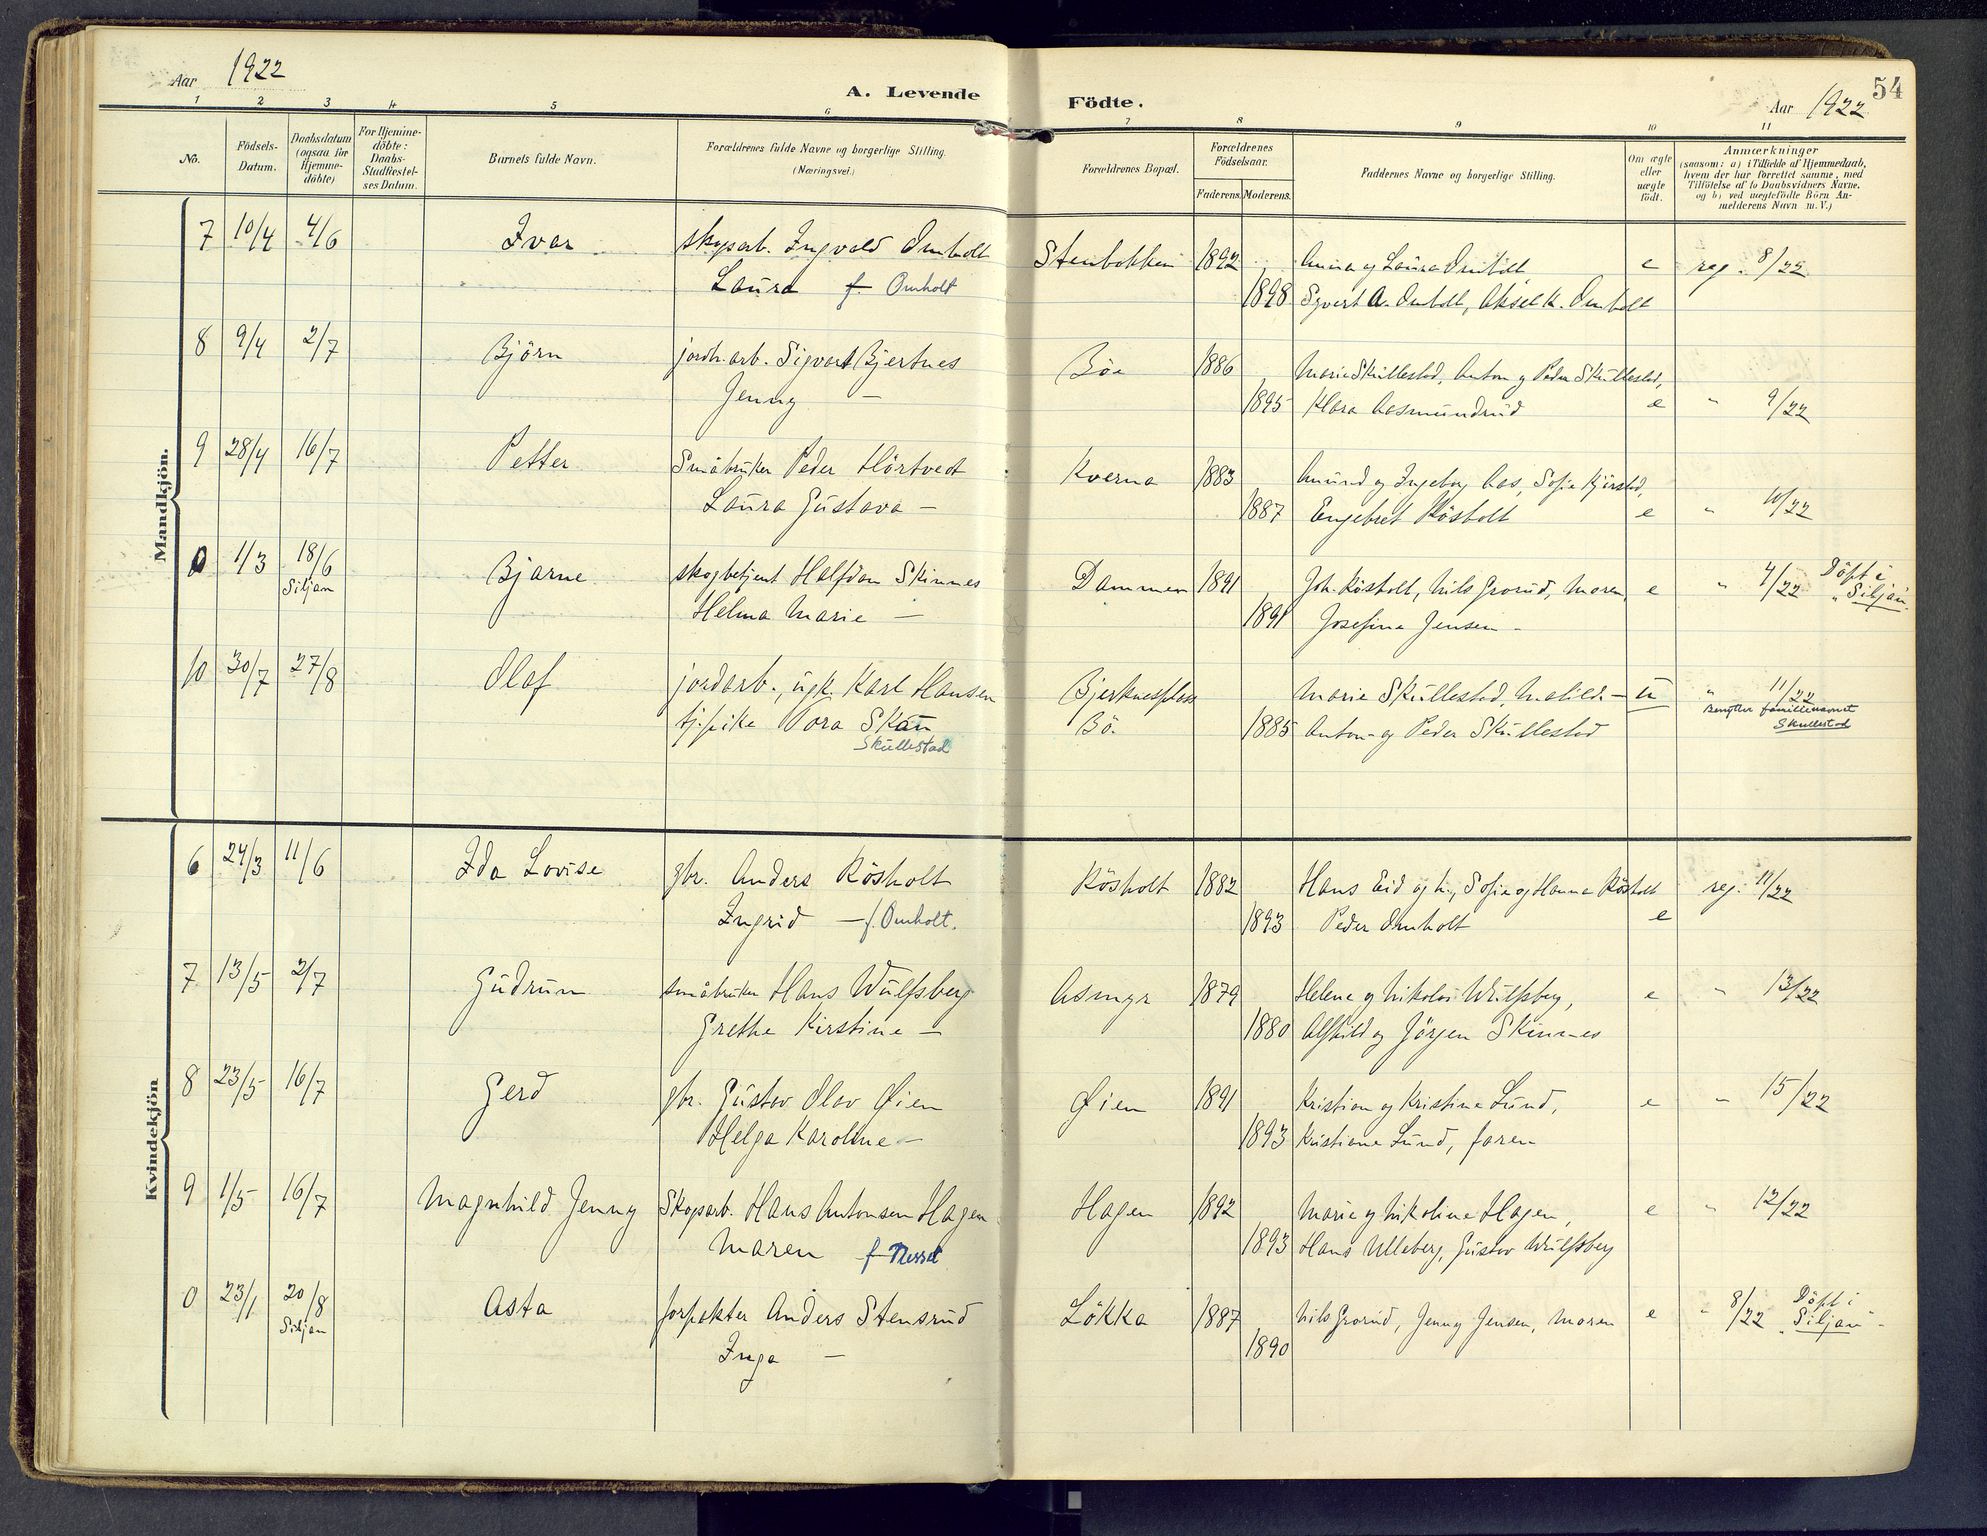 Aar 1922
A. Levende Födte.
Aar 1922
54
1 2 3 4 5 6 7 8 9 10 11
No.
Födsels-Datum.
Daabsdatum (ogsaa for Hjemme-döbte)
For Hjemme-döbte: Daabs-Stadfæstel-ses Datum.
Barnets fulde Navn.
Forældrenes fulde Navne og borgerlige Stilling.
(Næringsvei.)
Forældrenes Bopæl.
Forældrenes Födselsaar.
Faderens. Moderens.
Faddernes Navne og borgerlige Stilling.
Om ægte eller uægte födt.
Anmærkninger
(saasom: a) i Tilfælde af Hjemmedaab,
hvem der har forrettet samme, med
Tilföielse af to Daabsvidners Navne.
og b) ved uægtefödte Börn An-
melderens Navn m. V.)
Mandkjön.
7 10/4 4/6 Ivar skogsarb. Ingvald Omholt Stenbakken 1892 Anna og Laura Omholt e reg. 8/22
Laura f. Omholt 1898 Syvert A. Omholt, Aksel K. Omholt
8 9/4 2/7 Björn jordb.arb. Sigvart Bjertnes Böe 1886 Marie Skullestad, Anton og Peder Skullestad,
Jenny — 1895 Klara Aasmundrud e " 9/22
9 28/4 16/7 Petter Småbruker Peder Hörtvedt Kverna 1883 Amund og Ingeborg Aas, Sofie
Laura Gustava — 1887 Engebret Kösholt e " 10/22
0 1/3 18/6 Siljan Bjarne skogbetjent Halfdan Skinnes Dammen 1891 Joh. Kösholt, Nils Grorud, Maren, e " 4/22 Döpt i
Helma Marie — 1891 Josefine Jensen — "Siljan"
10 30/7 27/8 Olaf jordarb., ugk. Karl Hansen Bjerknesplass Marie Skullestad, Matilde — u " 11/22
tj.pike Tora Skau Bö. 1885 Anton og Peder Skullestad Benytter familienavnet
Skullestad Skullestad
Kvindekjön
6 24/3 11/6 Ida Lovise gbr. Anders Kösholt Kösholt 1882 Hans Eid og h., Sofie og Hanna Kösholt reg. 11/22
Ingrid — f. Omholt. 1893 Peder Omholt e
7 13/5 2/7 Gudrun småbruker Hans Wulfsberg Asmyr 1879 Helene og Nikolai Wulfsberg, e " 13/22
Grethe Kirstine — 1880 Alfhild og Jörgen Skinnes
8 23/5 16/7 Gerd gbr. Gustav Olav Øien Øien 1891 Kristian og Kristine Lund, e " 15/22
Helga Karoline — 1893 Kristiane Lund, faren
9 1/5 16/7 Magnhild Jenny Skogsarb. Hans Antonsen Hagen Hagen 1892 Marie og Nikoline Hagen, e " 12/22
Maren f. 1893 Hans Ulleberg, Gustav Wulfsberg
0 23/1 20/8 Siljan Asta forpakter Anders Stensrud Lökka 1887 Nils Grorud, Jenny Jensen, Maren e " 8/22 Döpt i
Inga — 1890 "Siljan"